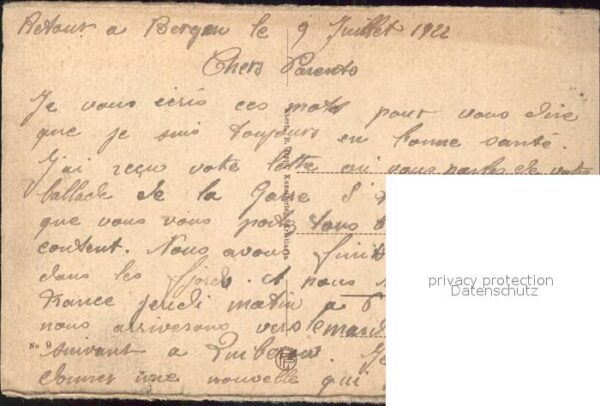 Retour a Bergen le 9 Juillet 1922
Chers Parents
Je vous écris ces mots pour vous dire
que je suis toujours en bonne santé.
J'ai reçu votre lettre où vous parlez de votre
ballade de la
que vous vous portez tous
content. Nous avons finit
dans les fjords et nous
France jeudi matin a
nous arriverons vers le mardi
suivant a Quiberon. Je
donner une nouvelle qui
No 9
privacy protection
Datenschutz